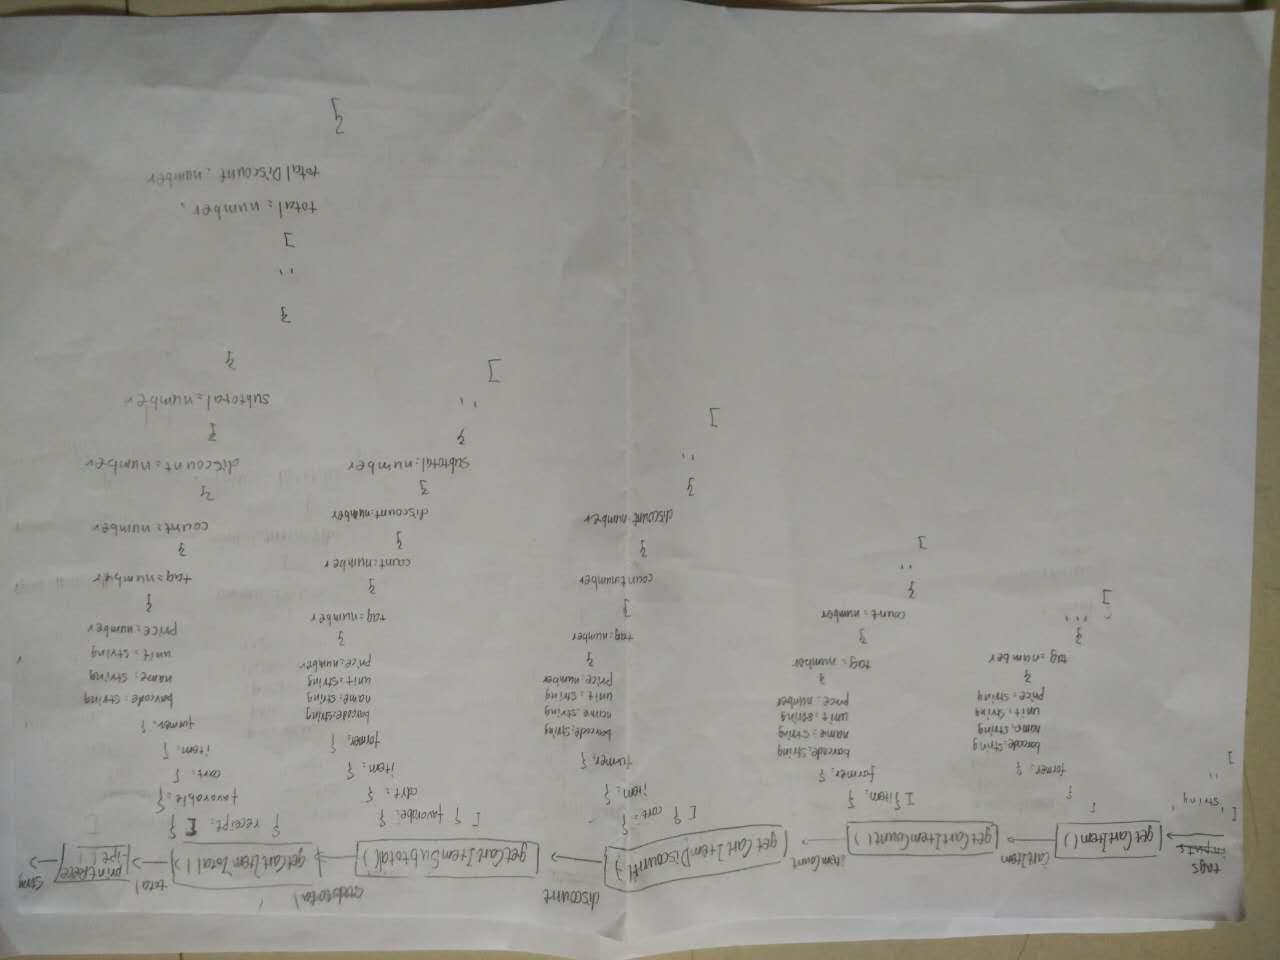 tags
inputs
getCartItem()
CartItem
getCartItemCount()
itemCount
getCartItemDiscount()
discount
getCartItemSubtotal()
getCartItemTotal()
total
printRece
ipt()
[
'string'
..
]
[
{
former: {
barcode: string
name: string
unit: string
price: string
}
tag: number
}
...
]
[ {item: {
former: {
barcode: string
name: string
unit: string
price: number
}
tag: number
}
count: number
}
..
]
[ { cart: {
item: {
former: {
barcode: string
name: string
unit: string
price: number
}
tag: number
}
count: number
}
discount: number
}
..
]
[ { favorable: {
cart: {
item: {
former: {
barcode: string
name: string
unit: string
price: number
}
tag: number
}
count: number
}
discount: number
}
subtotal: number
}
..
]
{ receipt: [ {
favorable: {
cart: {
item: {
former: {
barcode: string
name: string
unit: string
price: number
}
tag: number
}
count: number
}
discount: number
}
subtotal: number
}
}
..
]
total: number,
totalDiscount: number
}
]